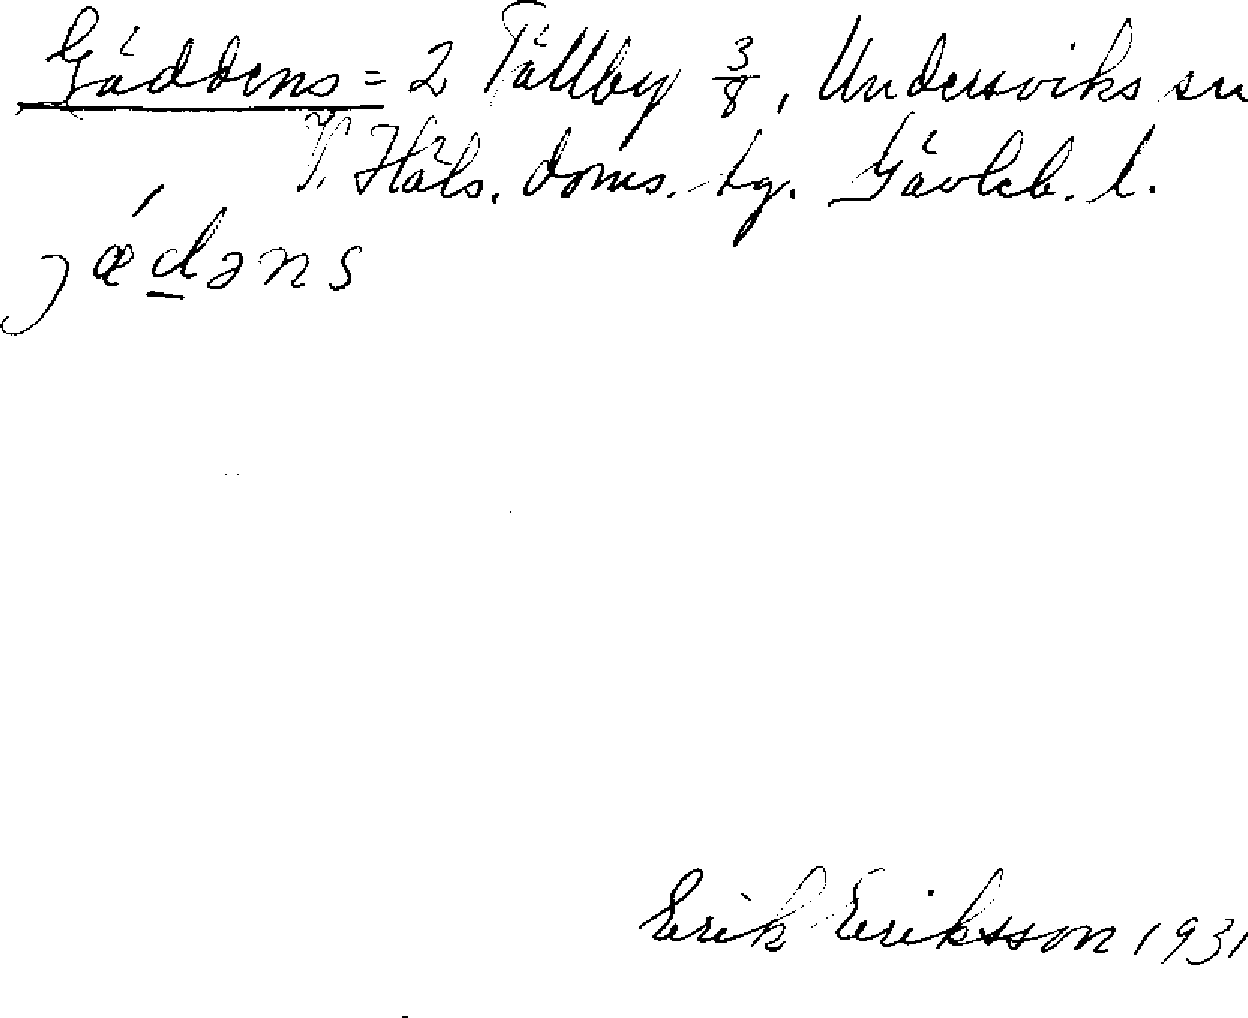 Gäddens = 2 Tällby 3/8, Undersviks sn
V. Häls. doms. tg. Gävleb. l.
jǽd̠əns
Erik Eriksson 1931